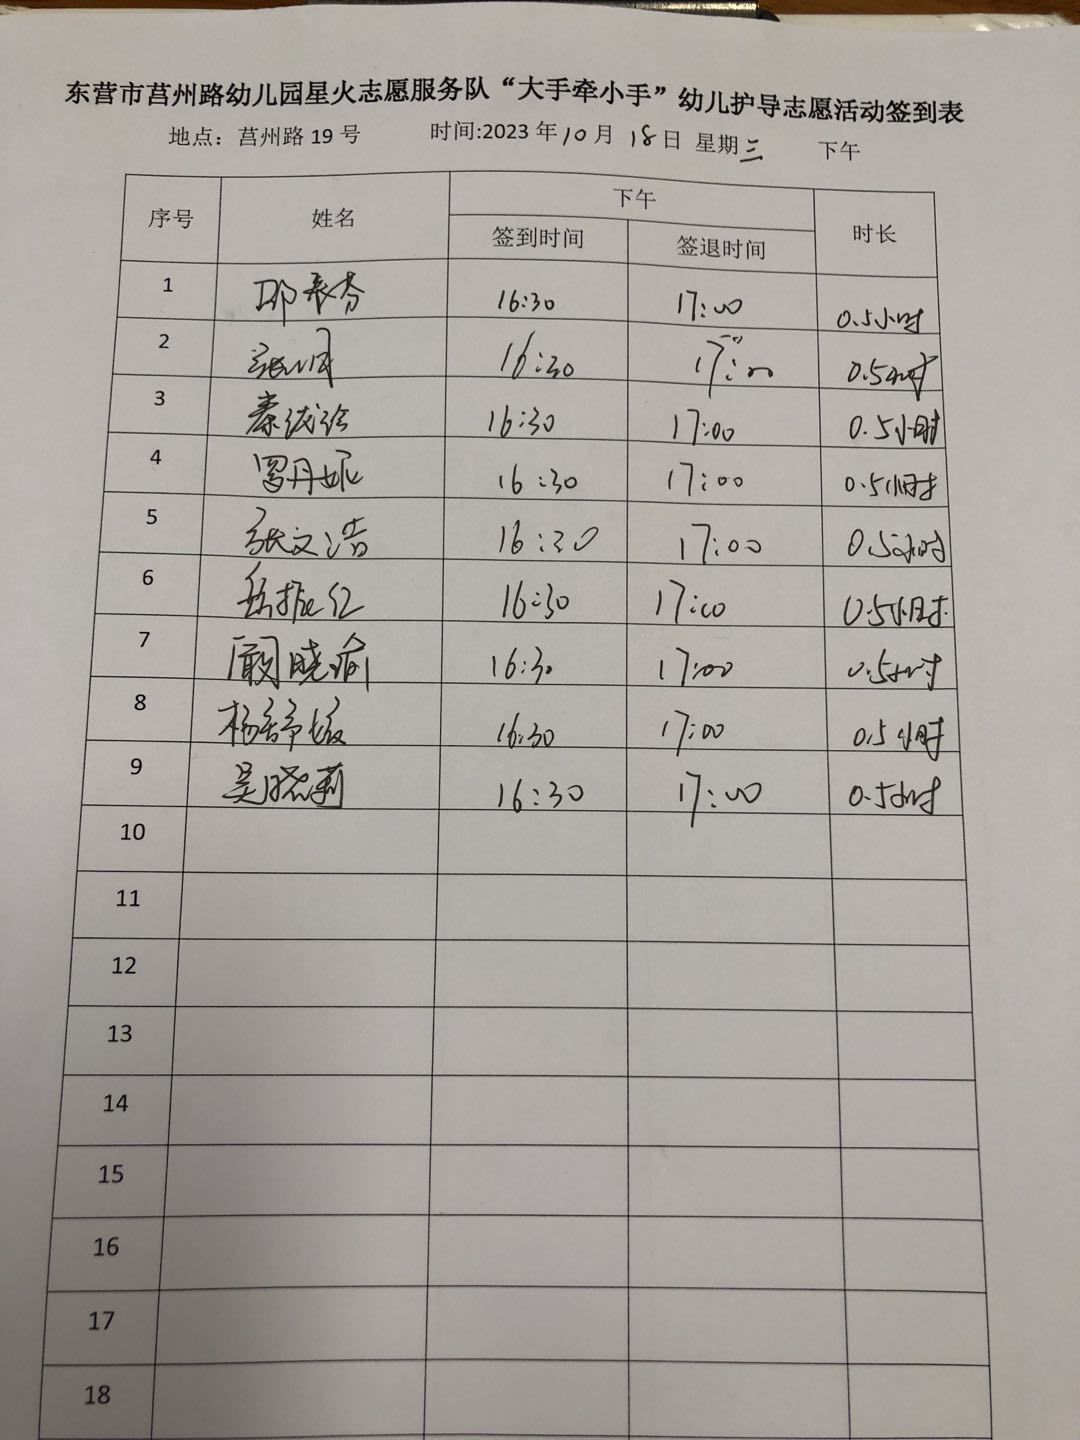 东营市莒州路幼儿园星火志愿服务队“大手牵小手”幼儿护导志愿活动签到表
地点：莒州路 19 号 时间:2023 年 10 月 18 日 星期三 下午
序号 姓名 下午 时长
签到时间 签退时间
1 16:30 17:00 0.5小时
2 16:30 17:00 0.5小时
3 秦 16:30 17:00 0.5小时
4 罗丹妮 16:30 17:00 0.5小时
5 张文浩 16:30 17:00 0.5小时
6 岳振红 16:30 17:00 0.5小时
7 顾晓瑜 16:30 17:00 0.5小时
8 杨静媛 16:30 17:00 0.5小时
9 吴晓莉 16:30 17:00 0.5小时
10
11
12
13
14
15
16
17
18